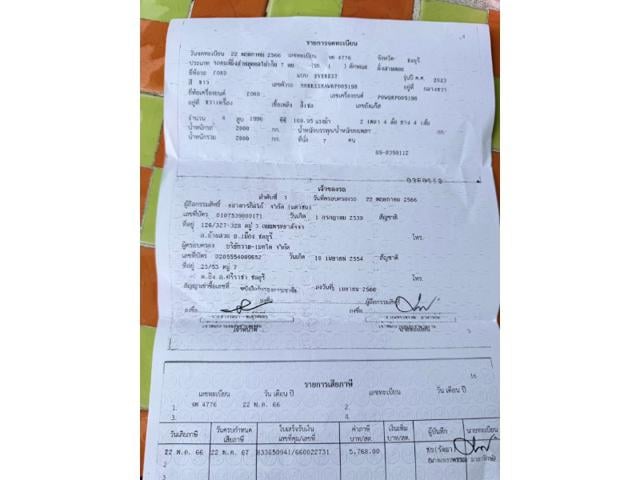 รายการจดทะเบียน
วันจดทะเบียน 22 พฤษภาคม 2566 เลขทะเบียน จพ 4776 จังหวัด ชลบุรี
ประเภท รถยนต์นั่งส่วนบุคคลไม่เกิน 7 คน (รย. 1 ) ลักษณะ นั่งสามตอน
ยี่ห้อรถ FORD แบบ EVEREST รุ่นปี ค.ศ. 2023
สี ขาว เลขตัวรถ อยู่ที่ กลางขวา
ยี่ห้อเครื่องยนต์ FORD เลขเครื่องยนต์ P0WQRP005198
อยู่ที่ ขวาเครื่อง เชื้อเพลิง ดีเซล เลขถังแก๊ส
จำนวน 4 สูบ 1996 ซีซี 169.95 แรงม้า 2 เพลา 4 ล้อ ยาง 4 เส้น
น้ำหนักรถ 2000 กก. น้ำหนักบรรทุก/น้ำหนักลงเพลา กก.
น้ำหนักรวม 2000 กก. ที่นั่ง 7 คน
65-0350112
เจ้าของรถ
ลำดับที่ 1 วันที่ครอบครองรถ 22 พฤษภาคม 2566
ผู้ถือกรรมสิทธิ์ จำกัด (มหาชน)
เลขที่บัตร 0107539000171 วันเกิด 1 กรกฎาคม 2539 สัญชาติ
ที่อยู่ 126/327-328 หมู่ 3
ต.บ้านสวน อ.เมือง ชลบุรี โทร.
ผู้ครอบครอง จำกัด
เลขที่บัตร 0205554009652 วันเกิด 19 เมษายน 2554 สัญชาติ
ที่อยู่ 23/53 หมู่ 7
ต.บึง อ.ศรีราชา ชลบุรี โทร.
สัญญาเช่าซื้อเลขที่ ลงวันที่ เมษายน 2566
ลงชื่อ ผู้ถือกรรมสิทธิ์
ลงชื่อ
เจ้าหน้าที่ นายทะเบียน
16
รายการเสียภาษี
เลขทะเบียน วัน เดือน ปี เลขทะเบียน วัน เดือน ปี
1. จพ 4776 22 พ.ค. 66 2.
3. 4.
วันเสียภาษี วันครบกำหนดเสียภาษี ใบเสร็จรับเงิน เลขที่คุม/เลขที่ ค่าภาษี บาท/สต. เงินเพิ่ม บาท/สต. ผู้บันทึก นายทะเบียน
22 พ.ค. 66 22 พ.ค. 67 833650941/660022731 5,768.00
2
3